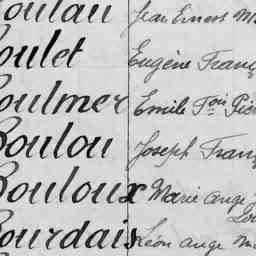 oulau Jean Ernest M
oulet Eugène Franç
oulmer Emile Foi Pie
Boulou Joseph Franç
Bouloux Marie Ange J
Lou
Bourdais Léon Ange M